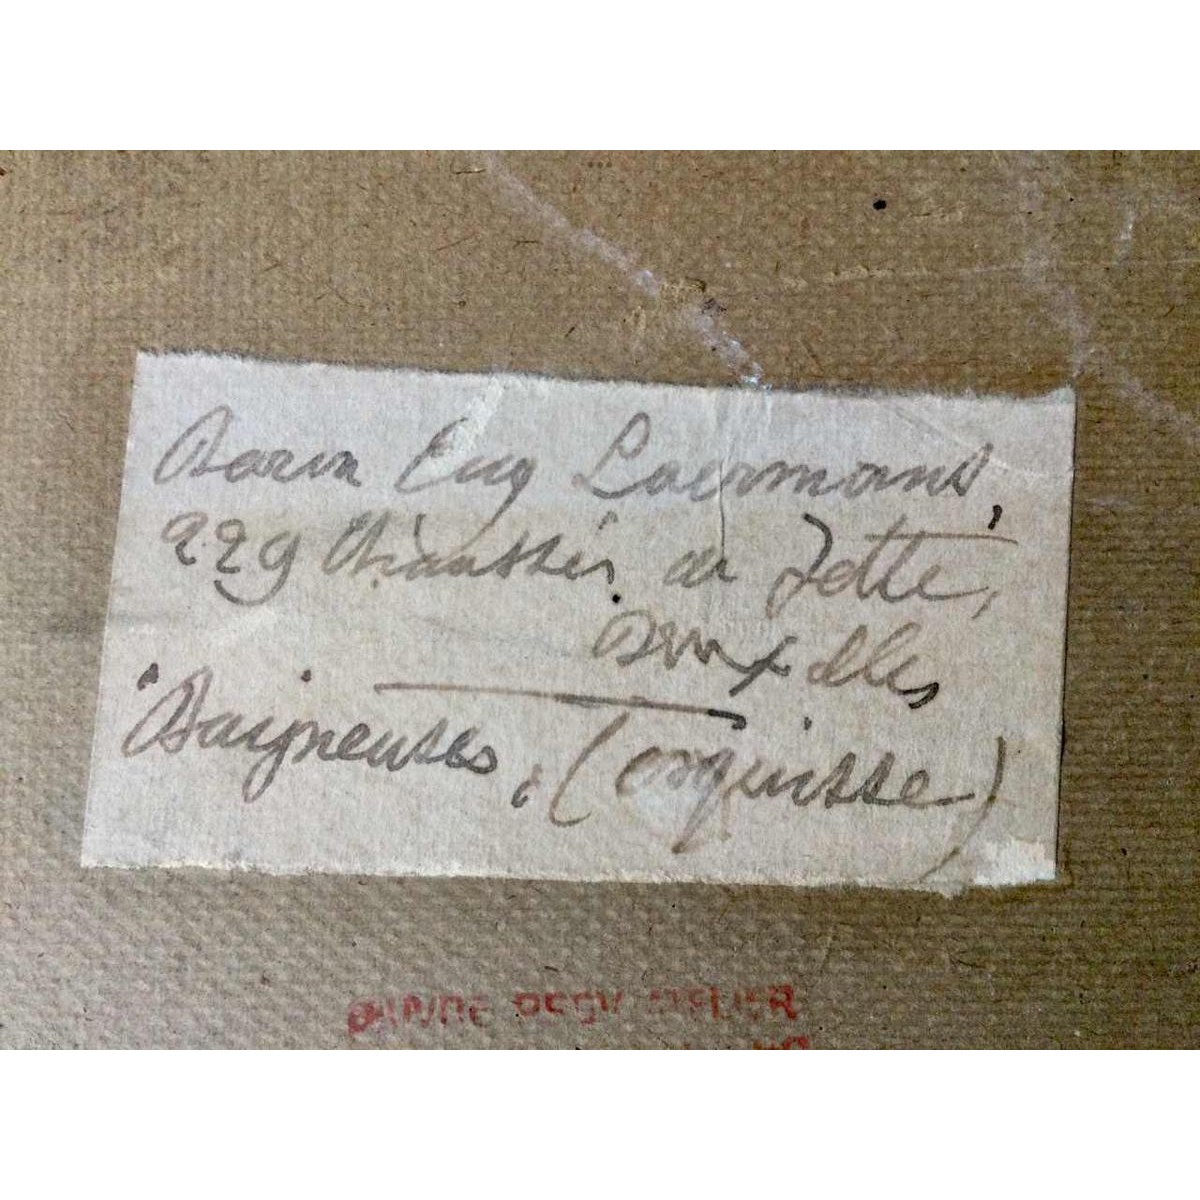 Baron Eug Laermans,
229 Chaussée de Jette,
Bruxelles
"Baigneuses" (esquisse)